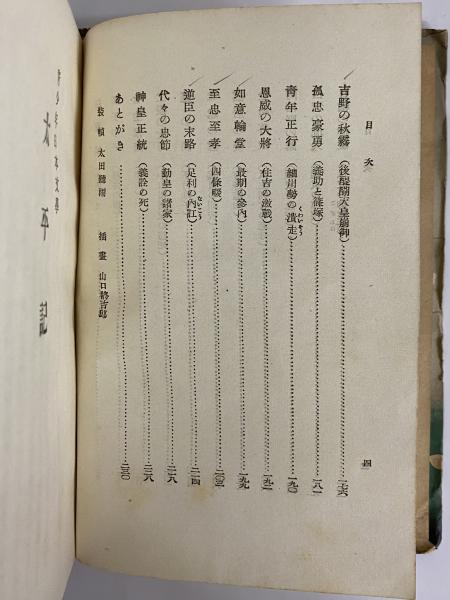 目次
四
吉野の秋霧(後醍醐天皇崩御)…一七六
孤忠豪勇(義助と篠塚)…一八一
青年正行(細川勢の潰走)…一九〇
くわいそう
恩威の大將(住吉の激戰)…一九二
如意輪堂(最期の參內)…一九九
至忠至孝(四條畷)…二〇三
逆臣の末路(足利の內訌)…二一四
ないこう
代々の忠節(勤皇の諸家)…二一八
神皇正統(義詮の死)…二二八
あとがき…二三〇
裝幀 太田聽雨 插畫 山口將吉郞
太平記